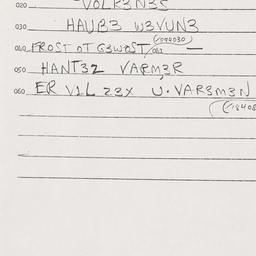 020 VOLR3N3S
030 HAUB3 W3VUN3
040 FROST OT G3WOST /061 (094030)
050 HANT3Z VARM3R
060 ER V1L Z3X U. VAR3M3N